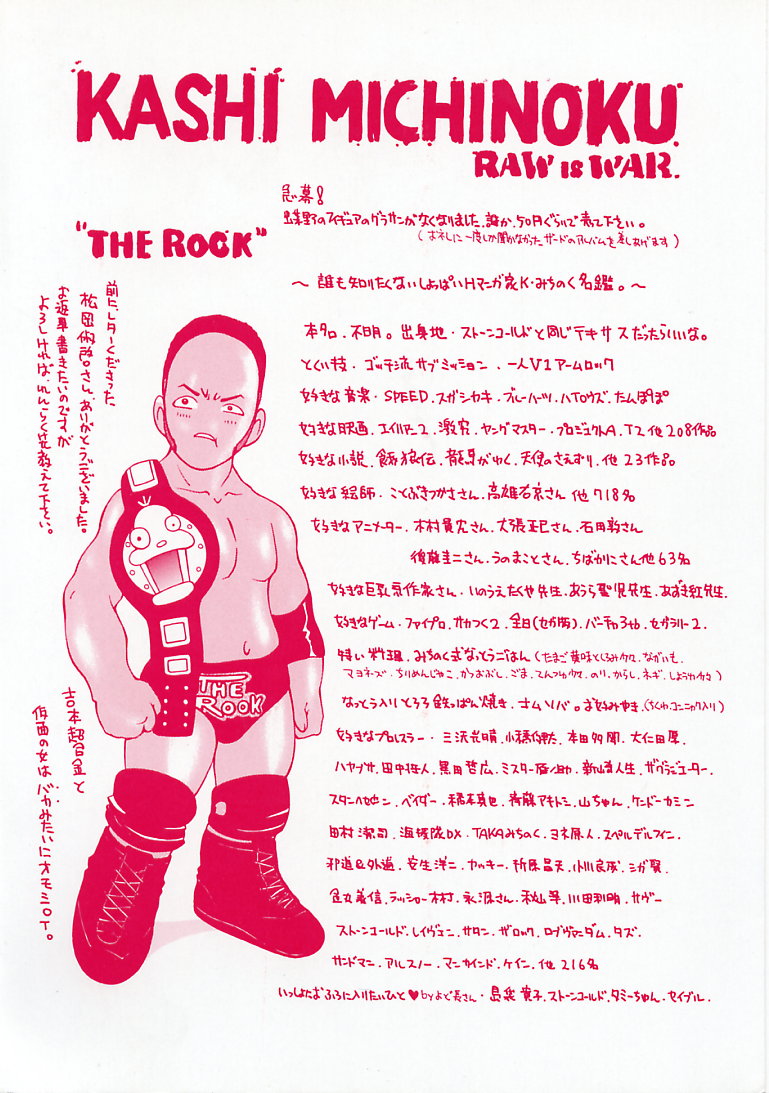 KASHI MICHINOKU
RAW IS WAR.
"THE ROCK"
急募!
蝶野のフィギュアのグラサンがなくなりました。誰か、50円ぐらいで売て下さい。
(お礼に一度しか聞かなかったザードのアルバムを差しあげます)
〜 誰も知りたくないしょっぱいHマンガ家K・みちのく名鑑。〜
本名、不明。出身地・ストーンコールドと同じテキサスだったらいいな。
とくい技・ゴッチ流サブミッション、一人V1アームロック
好きな音楽・SPEED.スガシカオ.ブルーハーツ.ハイロウズ.たんぽぽ
好きな映画.エイリアン2.激突.ヤングマスター.プロジェクトA.T2他208作品
好きな小説.餓狼伝.龍馬がゆく.天使のさえずり.他23作品
好きな絵師・ことぶきつかささん.高雄右京さん 他718名
好きなアニメーター.木村貴宏さん.大張正己さん.石田敦さん
後藤圭二さん.うのまことさん.ちばかにこさん他63名
好きな巨乳系作家さん・いのうえたくや先生.あうら聖児先生.あずき紅先生.
好きなゲーム・ファイプロ.サカつく2.全日(セガ版).バーチャ3tb.セガラリー2.
特い料理.みちのく式なっとうごはん(たまご黄味とくるみ
ながいも.
マヨネーズ.ちりめんじゃこ.かつおぶし.ごま.てんつゆ
のり.からし.ネギ.しょうゆ
なっとう入りとろろ鉄っぱん焼き.オムソバ.お好みやき.(ちくわ.コンニャク入り)
好きなプロレスラー・三沢光晴.小橋健太.本田多聞.大仁田厚.
ハヤブサ.田中将人.黒田哲広.ミスター雁之助.新山勝利.ザグラジエーター.
スタンハンセン.ベイダー.橋本真也.斉藤アキトシ.山ちゃん.ケンドーカシン
田村潔司.海坂DX.TAKAみちのく.ヨネ原人.スペルデルフィン.
邪道&外道.安生洋二.ヤッキー.折原昌夫.小川良成.シガ賢.
金丸義信.ラッシャー木村.永源さん.秋山準.川田利明.サブー
ストーンコールド.レイヴェン.サタン.ザロック.ロブヴァンダム.タズ.
サンドマン.アルスノー.マンカインド.ケイン.他216名
いっしょにおふろに入りたいひと♥byよど長さん・島袋寛子.ストーンコールド.タミーちゃん.セイブル.
前にレターくださった
松岡
さん、ありがとうございました。
お返事書きたいのですが
よろしければ、れんらく先教えて下さい。
THE
ROCK
吉本超合金と
仮面の女はバカみたいにオモシロイ。